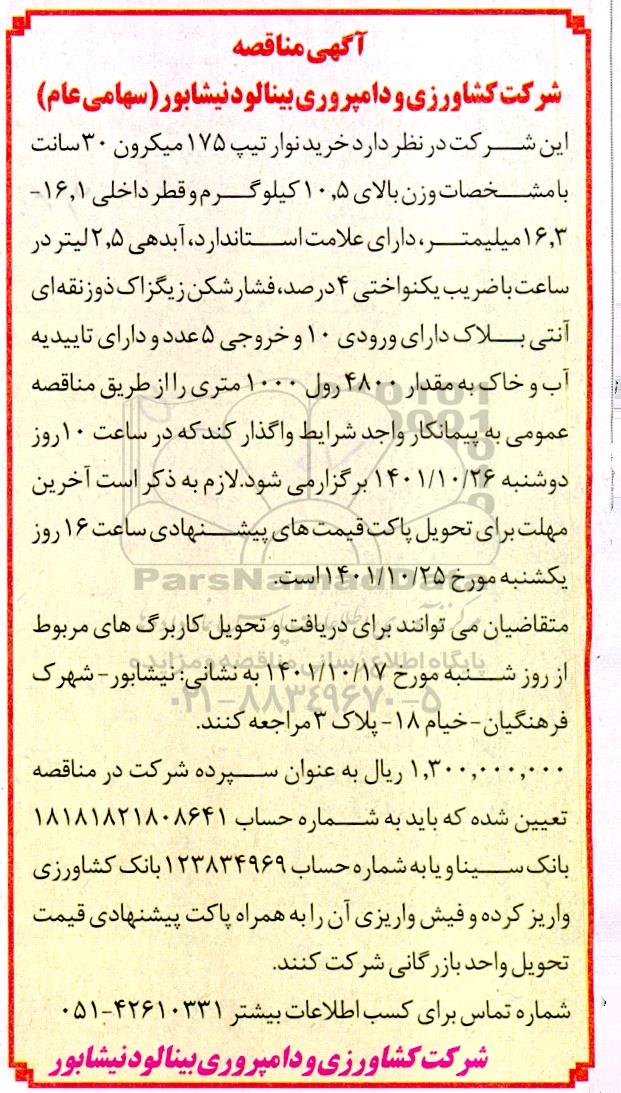 آگهی مناقصه
شرکت کشاورزی و دامپروری بینالود نیشابور (سهامی عام)
این شرکت در نظر دارد خرید نوار تیپ ۱۷۵ میکرون ۳۰ سانت
با مشخصات وزن بالای ۱۰,۵ کیلوگرم و قطر داخلی ۱۶,۱-
۱۶,۳ میلیمتر، دارای علامت استاندارد، آبدهی ۲,۵ لیتر در
ساعت با ضریب یکنواختی ۴ درصد، فشارشکن زیگزاک ذوزنقه‌ای
آنتی بلاک دارای ورودی ۱۰ و خروجی ۵ عدد و دارای تاییدیه
آب و خاک به مقدار ۴۸۰۰ رول ۱۰۰۰ متری را از طریق مناقصه
عمومی به پیمانکار واجد شرایط واگذار کند که در ساعت ۱۰ روز
دوشنبه ۱۴۰۱/۱۰/۲۶ برگزار می شود. لازم به ذکر است آخرین
مهلت برای تحویل پاکت قیمت های پیشنهادی ساعت ۱۶ روز
یکشنبه مورخ ۱۴۰۱/۱۰/۲۵ است.
ParsNamadData
متقاضیان می توانند برای دریافت و تحویل کاربرگ های مربوط
پایگاه اطلاع رسانی مناقصه و مزایده
از روز شنبه مورخ ۱۴۰۱/۱۰/۱۷ به نشانی: نیشابور - شهرک
۰۲۱-۸۸۳۴۹۶۷۰-۵
فرهنگیان - خیام ۱۸ - پلاک ۳ مراجعه کنند.
۱,۳۰۰,۰۰۰,۰۰۰ ریال به عنوان سپرده شرکت در مناقصه
تعیین شده که باید به شماره حساب ۱۸۱۸۱۸۲۱۸۰۸۶۴۱
بانک سینا و یا به شماره حساب ۱۲۳۸۳۴۹۶۹ بانک کشاورزی
واریز کرده و فیش واریزی آن را به همراه پاکت پیشنهادی قیمت
تحویل واحد بازرگانی شرکت کنند.
شماره تماس برای کسب اطلاعات بیشتر ۴۲۶۱۰۳۳۱-۰۵۱
شرکت کشاورزی و دامپروری بینالود نیشابور